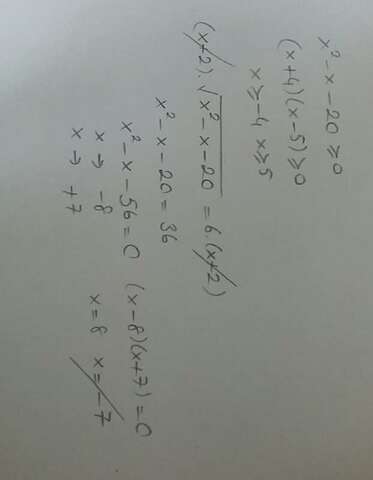 x² - x - 20 ≥ 0
(x+4)(x-5) ≥ 0
x ≥ -4 x ≥ 5
(x+2).√x² - x - 20 = 6.(x+2)
x² - x - 20 = 36
x² - x - 56 = 0 (x-8)(x+7) = 0
x → -8 x = 8 x = -7
x → +7